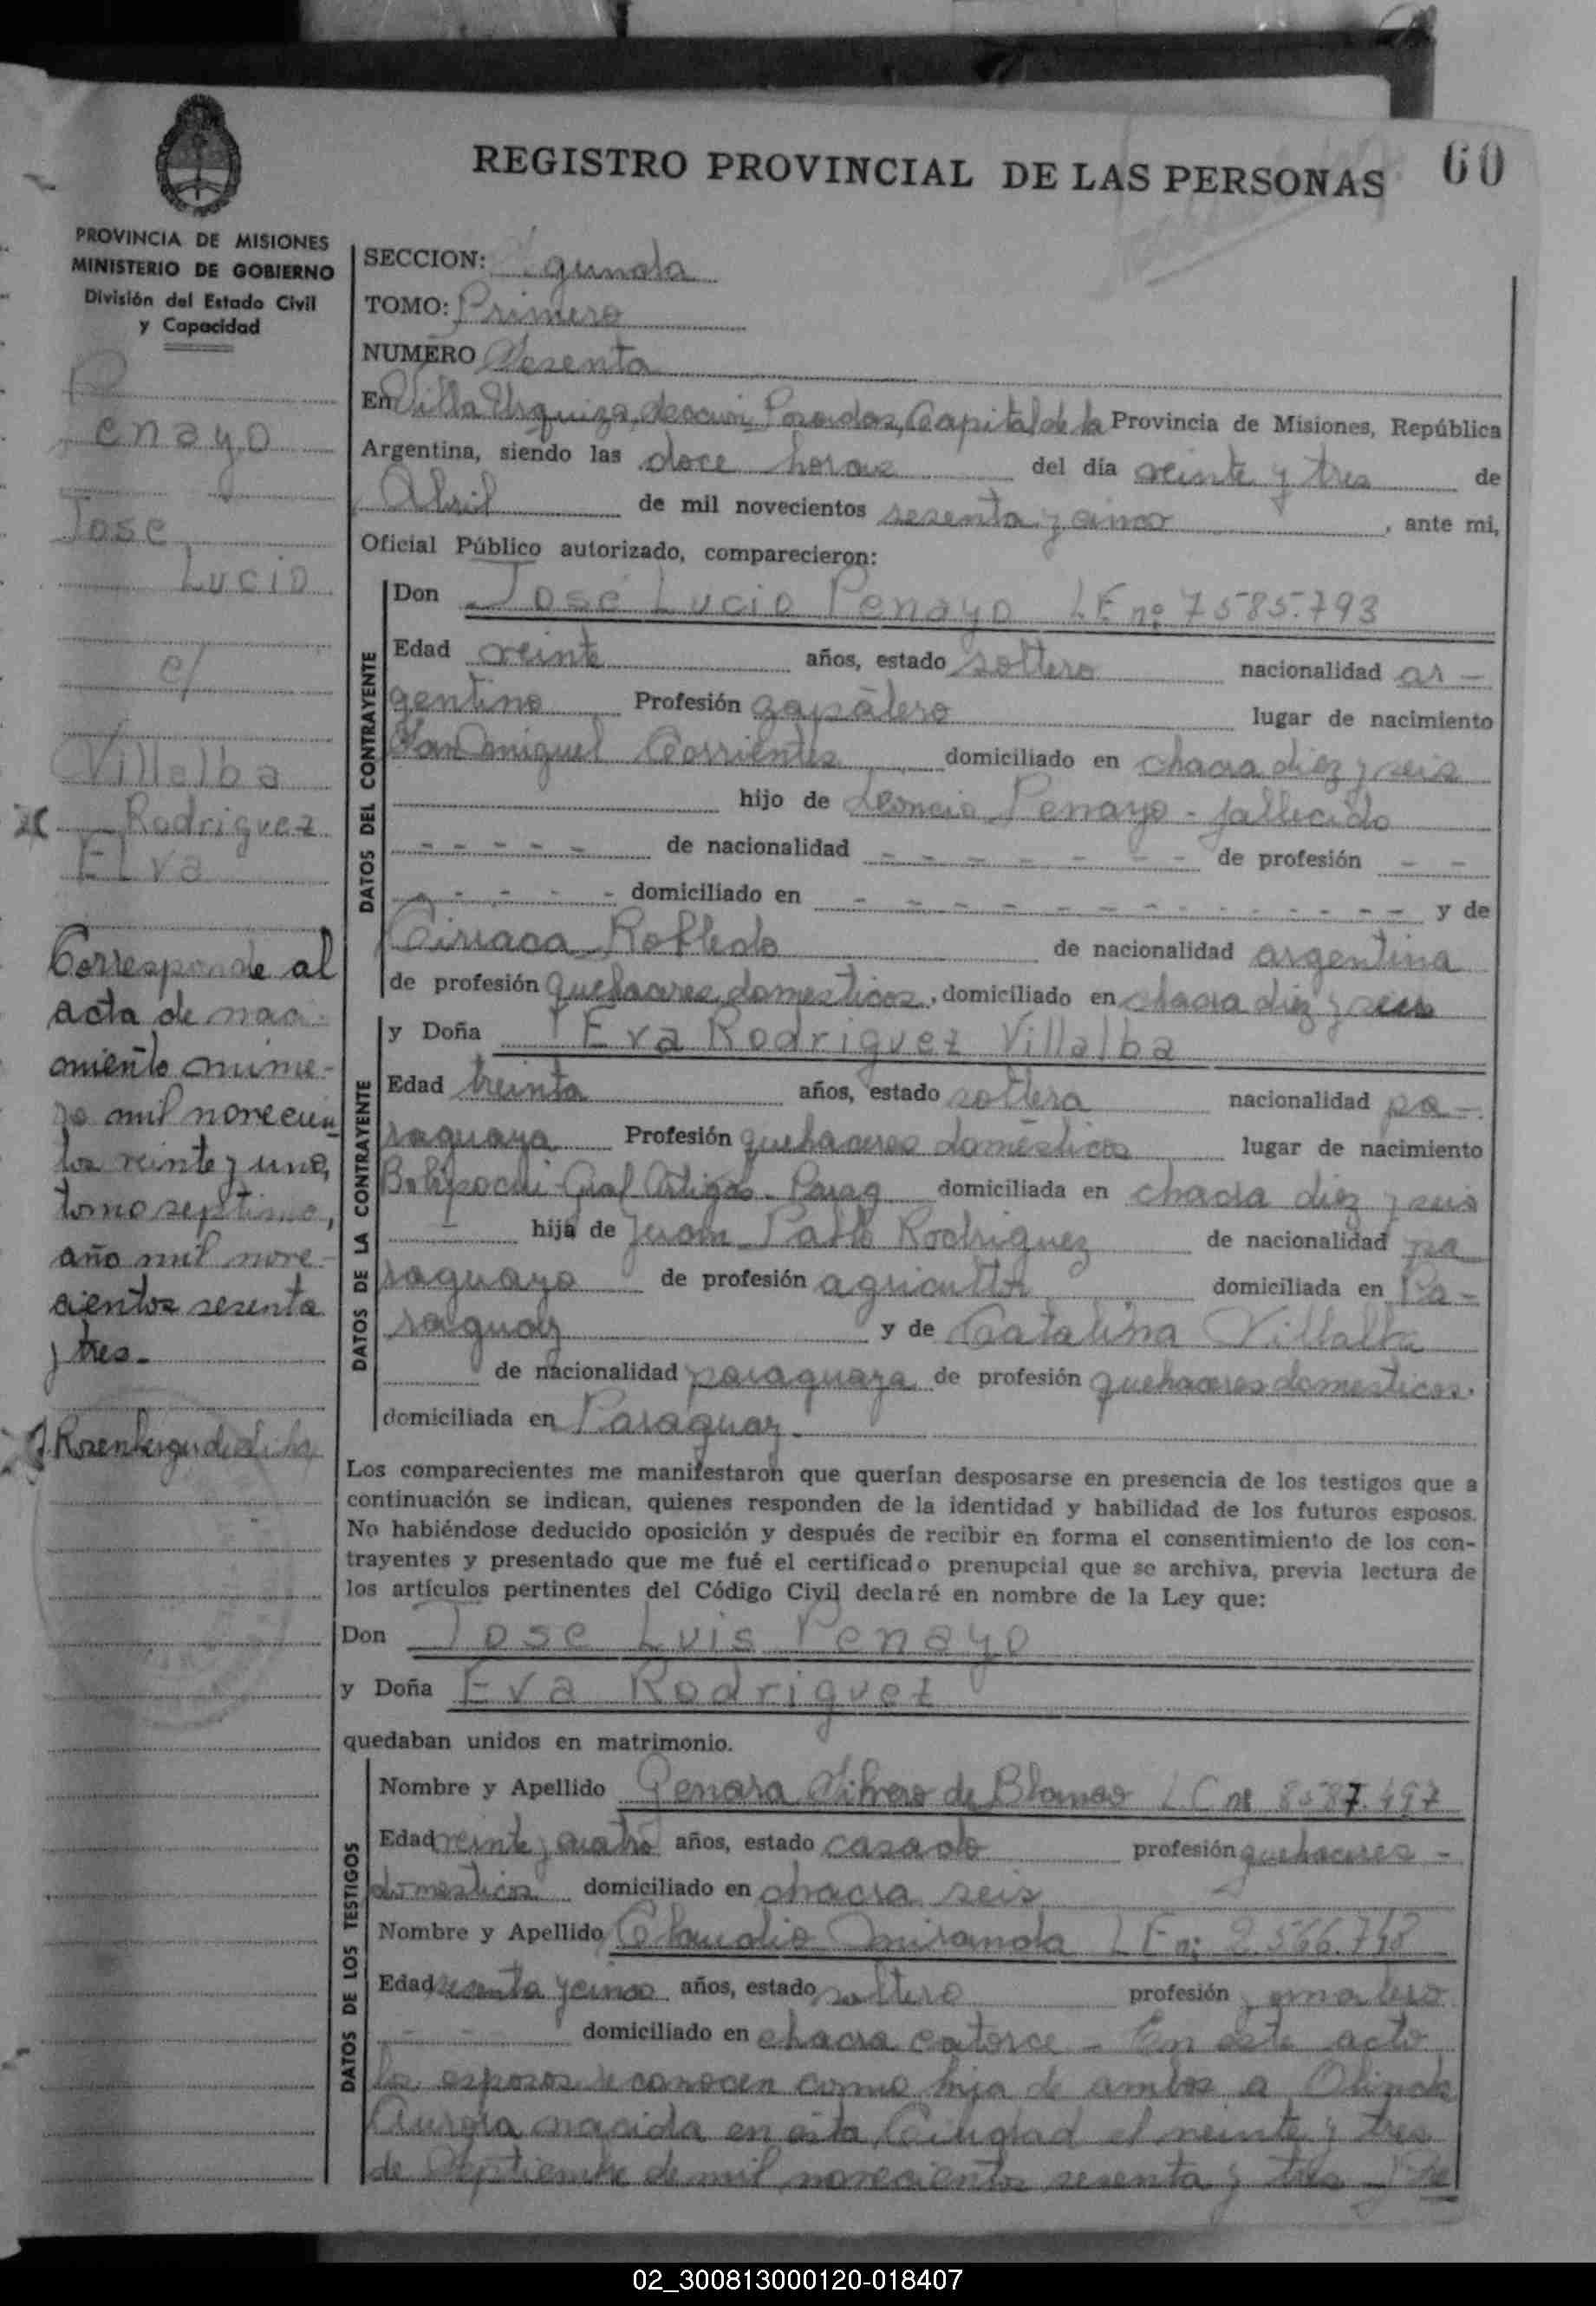 REGISTRO PROVINCIAL DE LAS PERSONAS
60
PROVINCIA DE MISIONES
MINISTERIO DE GOBIERNO
División del Estado Civil
y Capacidad
Penayo
Jose
Lucio
c/
Villalba
Rodriguez
Elva
Corresponde al
acta de naci-
miento núme-
ro mil novecien
tos veinte y uno,
tomo septimo,
año mil nove-
cientos sesenta
y tres.-
SECCION: Segunda
TOMO: Primero
NUMERO Sesenta
En Villa Urquiza, Posadas, Capital de la Provincia de Misiones, República
Argentina, siendo las doce horas del día veinte y tres de
Abril de mil novecientos sesenta y cinco, ante mi,
Oficial Público autorizado, comparecieron:
DATOS DEL CONTRAYENTE
Don José Lucio Penayo L.E. nº 7585.793
Edad veinte años, estado soltero nacionalidad ar-
gentino Profesión zapatero lugar de nacimiento
San Miguel Corrientes domiciliado en chacra diez y seis
hijo de Leoncio Penayo - fallecido
- - - - - de nacionalidad - - - - - - - de profesión - -
- - - - - domiciliado en - - - - - - - - - - - - - y de
Ciriaca Robledo de nacionalidad argentina
de profesión quehaceres domesticos, domiciliado en chacra diez y seis
DATOS DE LA CONTRAYENTE
y Doña Eva Rodriguez Villalba
Edad treinta años, estado soltera nacionalidad pa-
raguaya Profesión quehaceres domésticos lugar de nacimiento
Gral Artigas - Parag domiciliada en chacra diez y seis
- hija de Juan Pablo Rodriguez de nacionalidad pa
raguayo de profesión agricultor domiciliada en Pa-
raguay y de Catalina Villalba
de nacionalidad paraguaya de profesión quehaceres domesticos.
domiciliada en Paraguay.
Los comparecientes me manifestaron que querían desposarse en presencia de los testigos que a
continuación se indican, quienes responden de la identidad y habilidad de los futuros esposos.
No habiéndose deducido oposición y después de recibir en forma el consentimiento de los con-
trayentes y presentado que me fué el certificado prenupcial que se archiva, previa lectura de
los artículos pertinentes del Código Civil declaré en nombre de la Ley que:
Don Jose Luis Penayo
y Doña Eva Rodriguez
quedaban unidos en matrimonio.
DATOS DE LOS TESTIGOS
Nombre y Apellido Genara de Blanco L.C nº
Edad veinte y cuatro años, estado casado profesión quehaceres -
domesticos domiciliado en chacra seis
Nombre y Apellido Claudio Miranda L E nº 2.566.748
Edad sesenta y cinco años, estado soltero profesión jornalero
- - domiciliado en chacra catorce - En este acto
los esposos reconocen como hija de ambos a Olinda
Aurora nacida en esta Ciudad el veinte y tres
de Septiembre de mil novecientos sesenta y tres
02_300813000120-018407